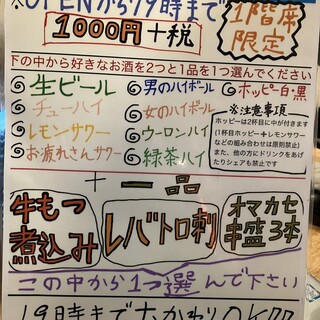 ※OPENから19時まで
1000円+税
1階席
限定
下の中から好きなお酒を2つと1品を1つ選んでください
生ビール
チューハイ
レモンサワー
お疲れさんサワー
男のハイボール
女のハイボール
ウーロンハイ
緑茶ハイ
ホッピー白・黒
※注意事項
ホッピーは2杯目に中が付きます
(1杯目ホッピー+レモンサワー
などの組み合わせは原則禁止)
また、他の方にドリンクをあげ
たりシェアも禁止です
+一品
牛もつ
煮込み
レバトロ刺
オマカセ
串盛3本
この中から1つ選んで下さい
19時までおかわりOK